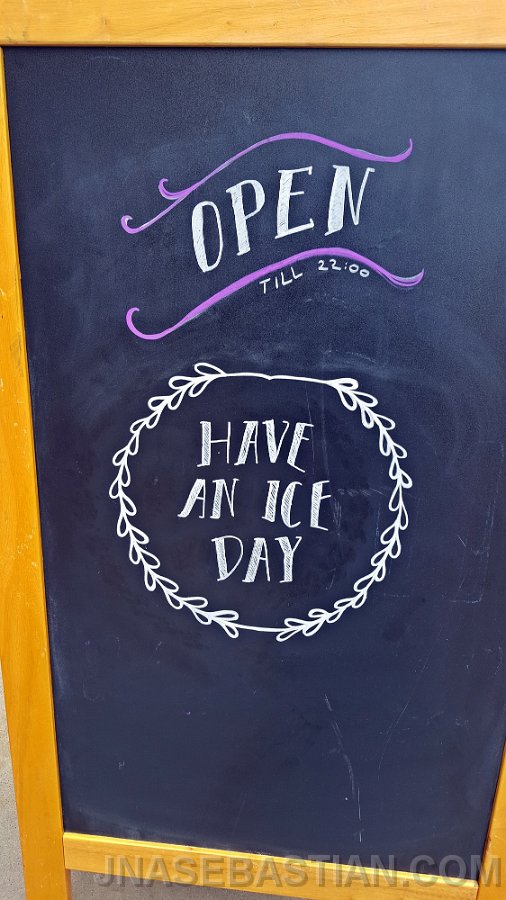 OPEN
TILL 22:00
HAVE
AN ICE
DAY
JNASEBASTIAN.COM